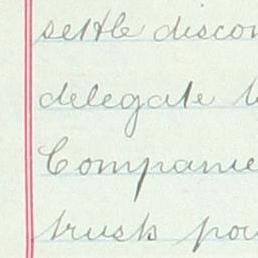 settle discon
delegate
Companie
trusts pow